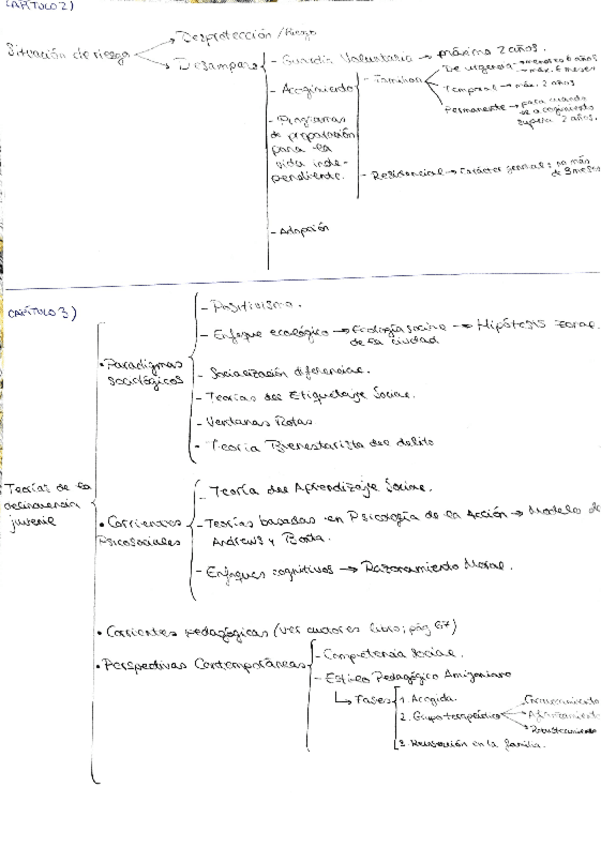 CAPÍTULO 2)
Situación de riesgo
Desprotección / Riesgo
Desamparo
- Guarda Voluntaria → máximo 2 años.
- Acogimiento
- Familiar
De urgencia → menores 6 años
→ máx. 6 meses
Temporal → máx. 2 años
Permanente → para cuando
el acogimiento
supera 2 años.
- Residencial → Carácter general: no más
de 3 meses
- Programas
de preparación
para la
vida inde-
pendiente.
- Adopción
CAPÍTULO 3)
Teorías de la
delincuencia
juvenil
• Paradigmas
sociológicos
- Positivismo.
- Enfoque ecológico → Ecología social → Hipótesis zonal
de la ciudad
- Socialización diferencial.
- Teorías del Etiquetaje Social.
- Ventanas Rotas
- Teoría Bienestarista del delito
• Corrientes
Psicosociales
- Teoría del Aprendizaje Social.
- Teorías basadas en Psicología de la Acción → Modelo de
Andrews y Bonta.
- Enfoques cognitivos → Razonamiento Moral.
• Corrientes pedagógicas (ver autores libro; pág 67)
• Perspectivas Contemporáneas
- Competencia Social.
- Estilo Pedagógico Amigoniano
↳ Fases
1. Acogida.
2. Grupo terapéutico
Encauzamiento
Afianzamiento
Robustecimiento
3. Reinserción en la familia.